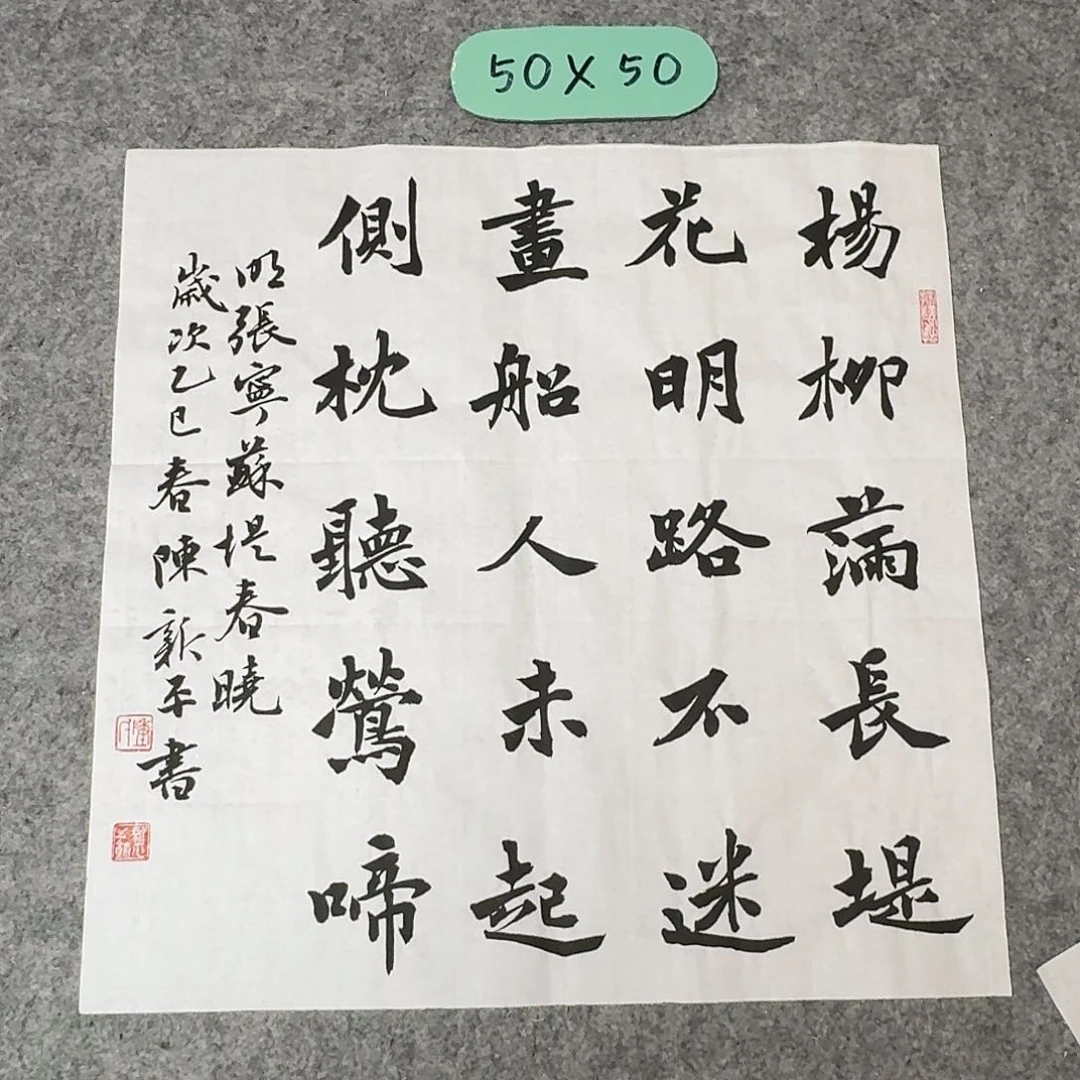 50X50
楊柳滿長堤
花明路不迷
畫船人未起
側枕聽鶯啼
明張寧蘇堤春曉
歲次乙巳春陳新平書